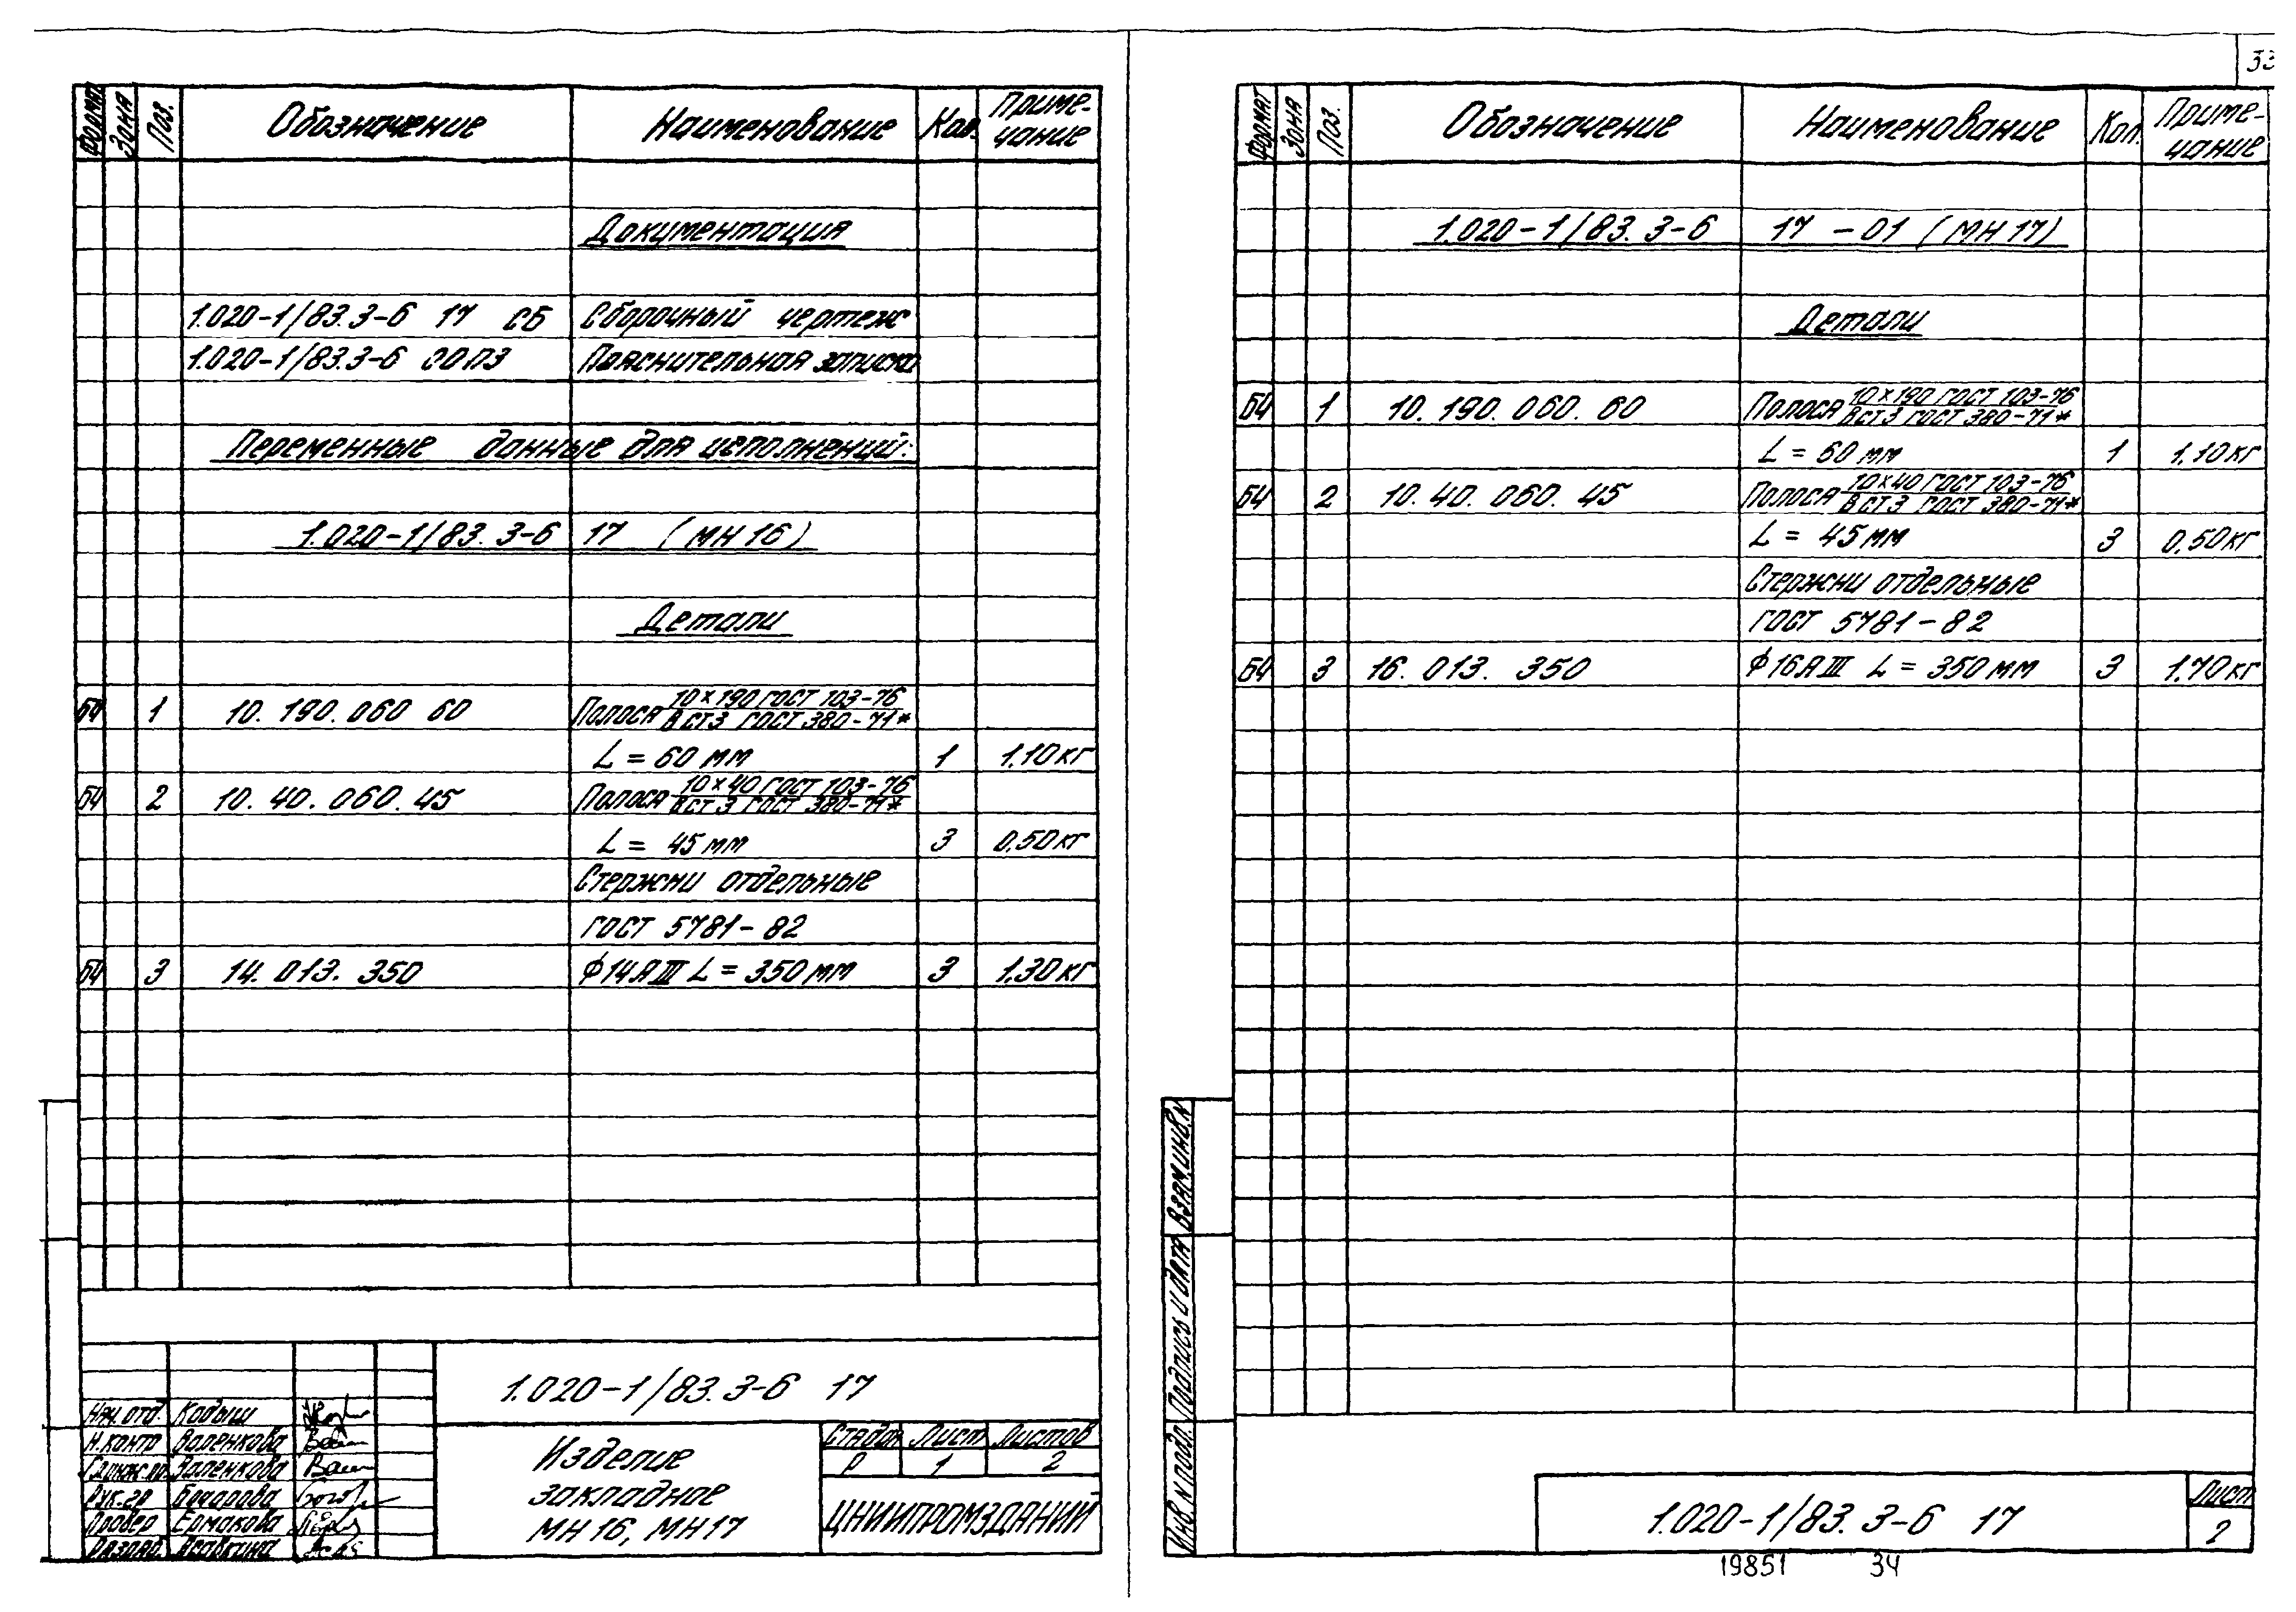 33
Формат Зона Поз. Обозначение Наименование Кол. Приме-
чание
Документация
1.020-1/83.3-6 17 СБ Сборочный чертеж
1.020-1/83.3-6 00ПЗ Пояснительная записка
Переменные данные для исполнений:
1.020-1/83.3-6 17 (МН16)
Детали
БЧ 1 10. 190. 060 60 Полоса 10×190 ГОСТ 103-76
В СТ3 ГОСТ 380-71*
L = 60 мм 1 1,10кг
БЧ 2 10. 40. 060. 45 Полоса 10×40 ГОСТ 103-76
В СТ3 ГОСТ 380-71*
L = 45 мм 3 0,50кг
Стержни отдельные
ГОСТ 5781-82
БЧ 3 14. 013. 350 Ф14АIII L = 350 мм 3 1,30кг
1.020-1/83.3-6 17
Нач.отд. Кодыш
Н.контр Валенкова
Валенкова
Рук.гр Бочарова
Провер Ермакова
Разраб.
Изделие
закладное
МН16, МН17
Стадия Лист Листов
Р 1 2
ЦНИИПРОМЗДАНИЙ
Формат Зона Поз. Обозначение Наименование Кол. Приме-
чание
1.020-1/83.3-6 17 -01 (МН17)
Детали
БЧ 1 10. 190. 060. 60 Полоса 10×190 ГОСТ 103-76
В СТ3 ГОСТ 380-71*
L = 60 мм 1 1,10кг
БЧ 2 10. 40. 060. 45 Полоса 10×40 ГОСТ 103-76
В СТ3 ГОСТ 380-71*
L = 45 мм 3 0,50кг
Стержни отдельные
ГОСТ 5781-82
БЧ 3 16. 013. 350 Ф16АIII L = 350 мм 3 1,70кг
Взам.инв.N
Подпись и дата
Инв.N подл.
1.020-1/83.3-6 17
Лист
2
19851 34